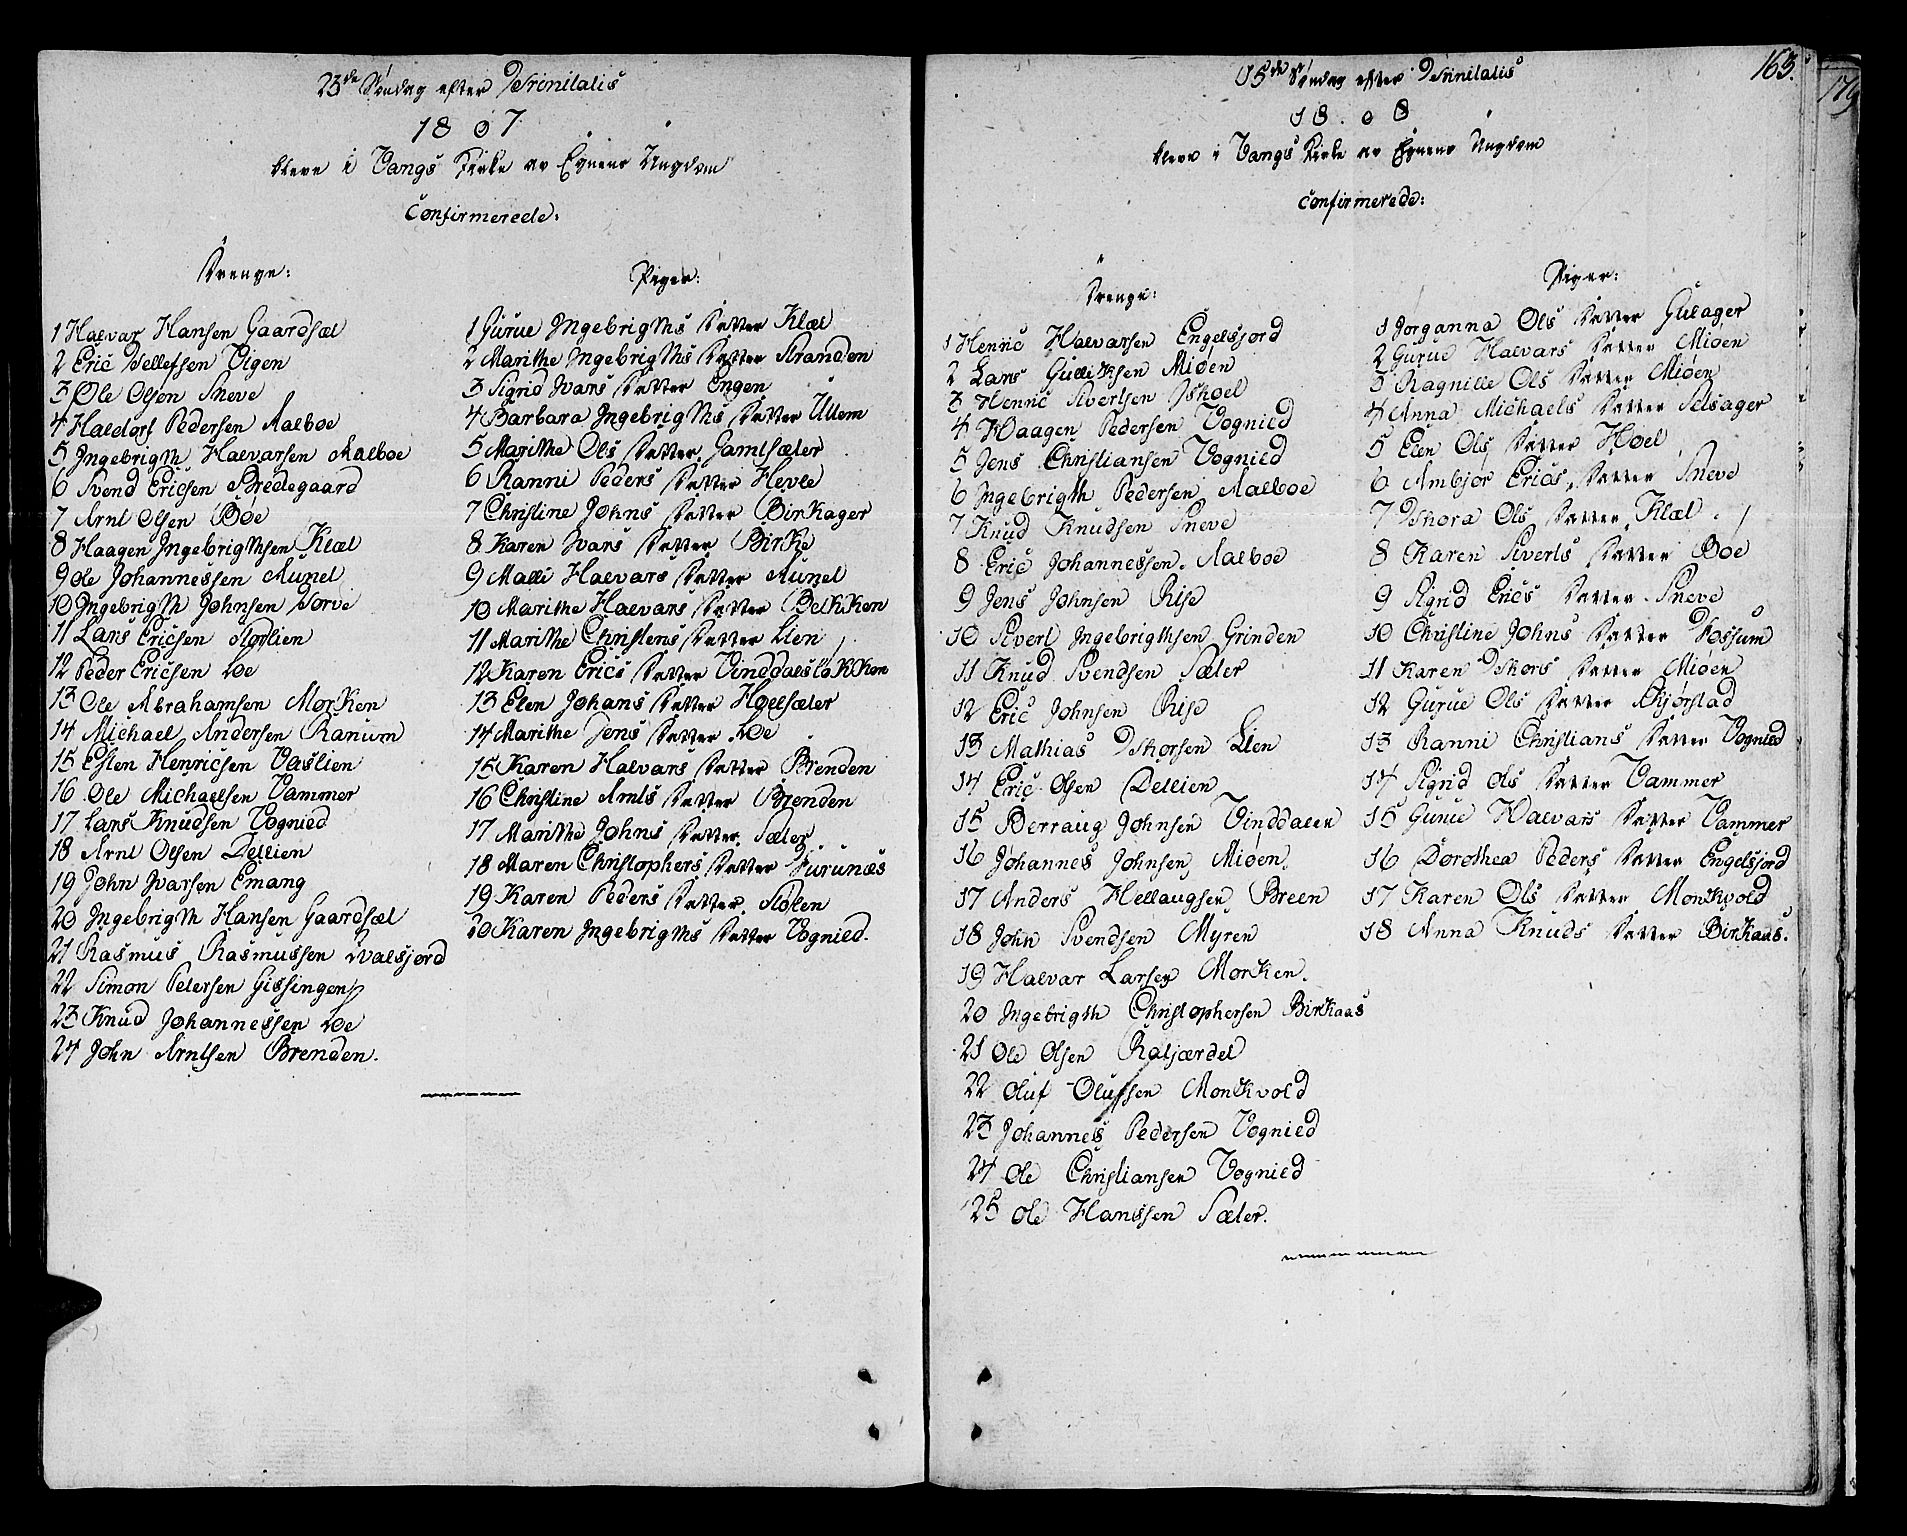 23de Søndag efter Trinitatis
1807
bleve i Vangs Kirke av Egnens Ungdom
Confirmerede:
Drenge:
1 Halvar Hansen Gaardsæl
2 Eric Dellefsen Vigen
3 Ole Olsen Sneve
4 Haldorf Pedersen Aalboe
5 Ingebrigth Halvarsen Aalboe
6 Svend Ericsen Bredegaard
7 Arnt Olsen Bøe
8 Haagen Ingebrigthsen Klæl
9 Ole Johannessen Aunel
10 Ingebrigth Johnsen Torve
11 Lars Ericsen Storlien
12 Peder Ericsen Loe
13 Ole Abrahamsen Morken
14 Michael Andersen Ranum
15 Esten Henricsen Vaslien
16 Ole Michaelsen Vammer
17 Lars Knudsen Vognied
18 Arnt Olsen Dellien
19 John Ivarsen Emang
20 Ingebrigth Hansen Gaardsæl
21 Rasmus Rasmussen Hvalsjord
22 Simon Petersen Gissingen
23 Knud Johannessen Loe
24 John Arntsen Brenden.
Piger:
1 Gurue Ingebrigths Datter Klæl
2 Marithe Ingebrigths Datter Stranden
3 Sigrid Ivars Datter Engen
4 Barbara Ingebrigths Datter Ullem
5 Marithe Ols Datter Gamlsæler
6 Ranni Peders Datter Hevle
7 Christine Johns Datter Birkager
8 Karen Ivars Datter Birke
9 Malli Halvars Datter Aunel
10 Marithe Halvars Datter Bekken
11 Marithe Christens Datter Lien
12 Karen Erics Datter Vinddalsløkken
13 Elen Johans Datter Hoelsæler
14 Marithe Jens Datter Loe
15 Karen Halvars Datter Brenden
16 Christine Arnts Datter Brenden
17 Marithe Johns Datter Sæler
18 Maren Christophers Datter Furunæs
19 Karen Peders Datter Stølen
20 Karen Ingebrigths Datter Vognied.
163.
15de Søndag efter Trinitatis
1808
bleve i Vangs Kirke av Egnens Ungdom
Confirmerede:
Drenge:
1 Henric Halvarsen Engelsjord
2 Lars Gulliksen Miøen
3 Henric Sivertsen Ishoel
4 Haagen Pedersen Vognied
5 Jens Christiansen Vognied
6 Ingebrigth Pedersen Aalboe
7 Knud Knudsen Sneve
8 Eric Johannessen Aalboe
9 Jens Johnsen Rise
10 Sivert Ingebrigthsen Grinden
11 Knud Svendsen Sæler
12 Eric Johnsen Rise
13 Mathias Thorsen Lien
14 Eric Olsen Dellien
15 Berraug Johnsen Vinddalen
16 Johannes Johnsen Miøen
17 Anders Hellaugsen Breen
18 John Svendsen Myren
19 Halvar Larsen Morken.
20 Ingebrigth Christophersen Birkaas
21 Ole Olsen Raljærdel
22 Oluf Olufsen Monkvold
23 Johannes Pedersen Vognied
24 Ole Christiansen Vognied
25 Ole Hanssen Sæler.
Piger:
1 Jorganna Ols Datter Gulager
2 Gurue Halvars Datter Miøen
3 Ragnille Ols Datter Miøen
4 Anna Michaels Datter Selsager
5 Elen Ols Datter Hoel
6 Ambjor Erics Datter Sneve
7 Thora Ols Datter Klæl
8 Karen Siverts Datter Bøe
9 Sigrid Erics Datter Sneve
10 Christine Johns Datter Fossum
11 Karen Thors Datter Miøen
12 Gurue Ols Datter Skjørstad
13 Ranni Christians Datter Vognied
14 Sigrid Ols Datter Vammer
15 Gurue Halvars Datter Vammer
16 Dorothea Peders Datter Engelsjord
17 Karen Ols Datter Monkvold
18 Anna Knuds Datter Birkaas.